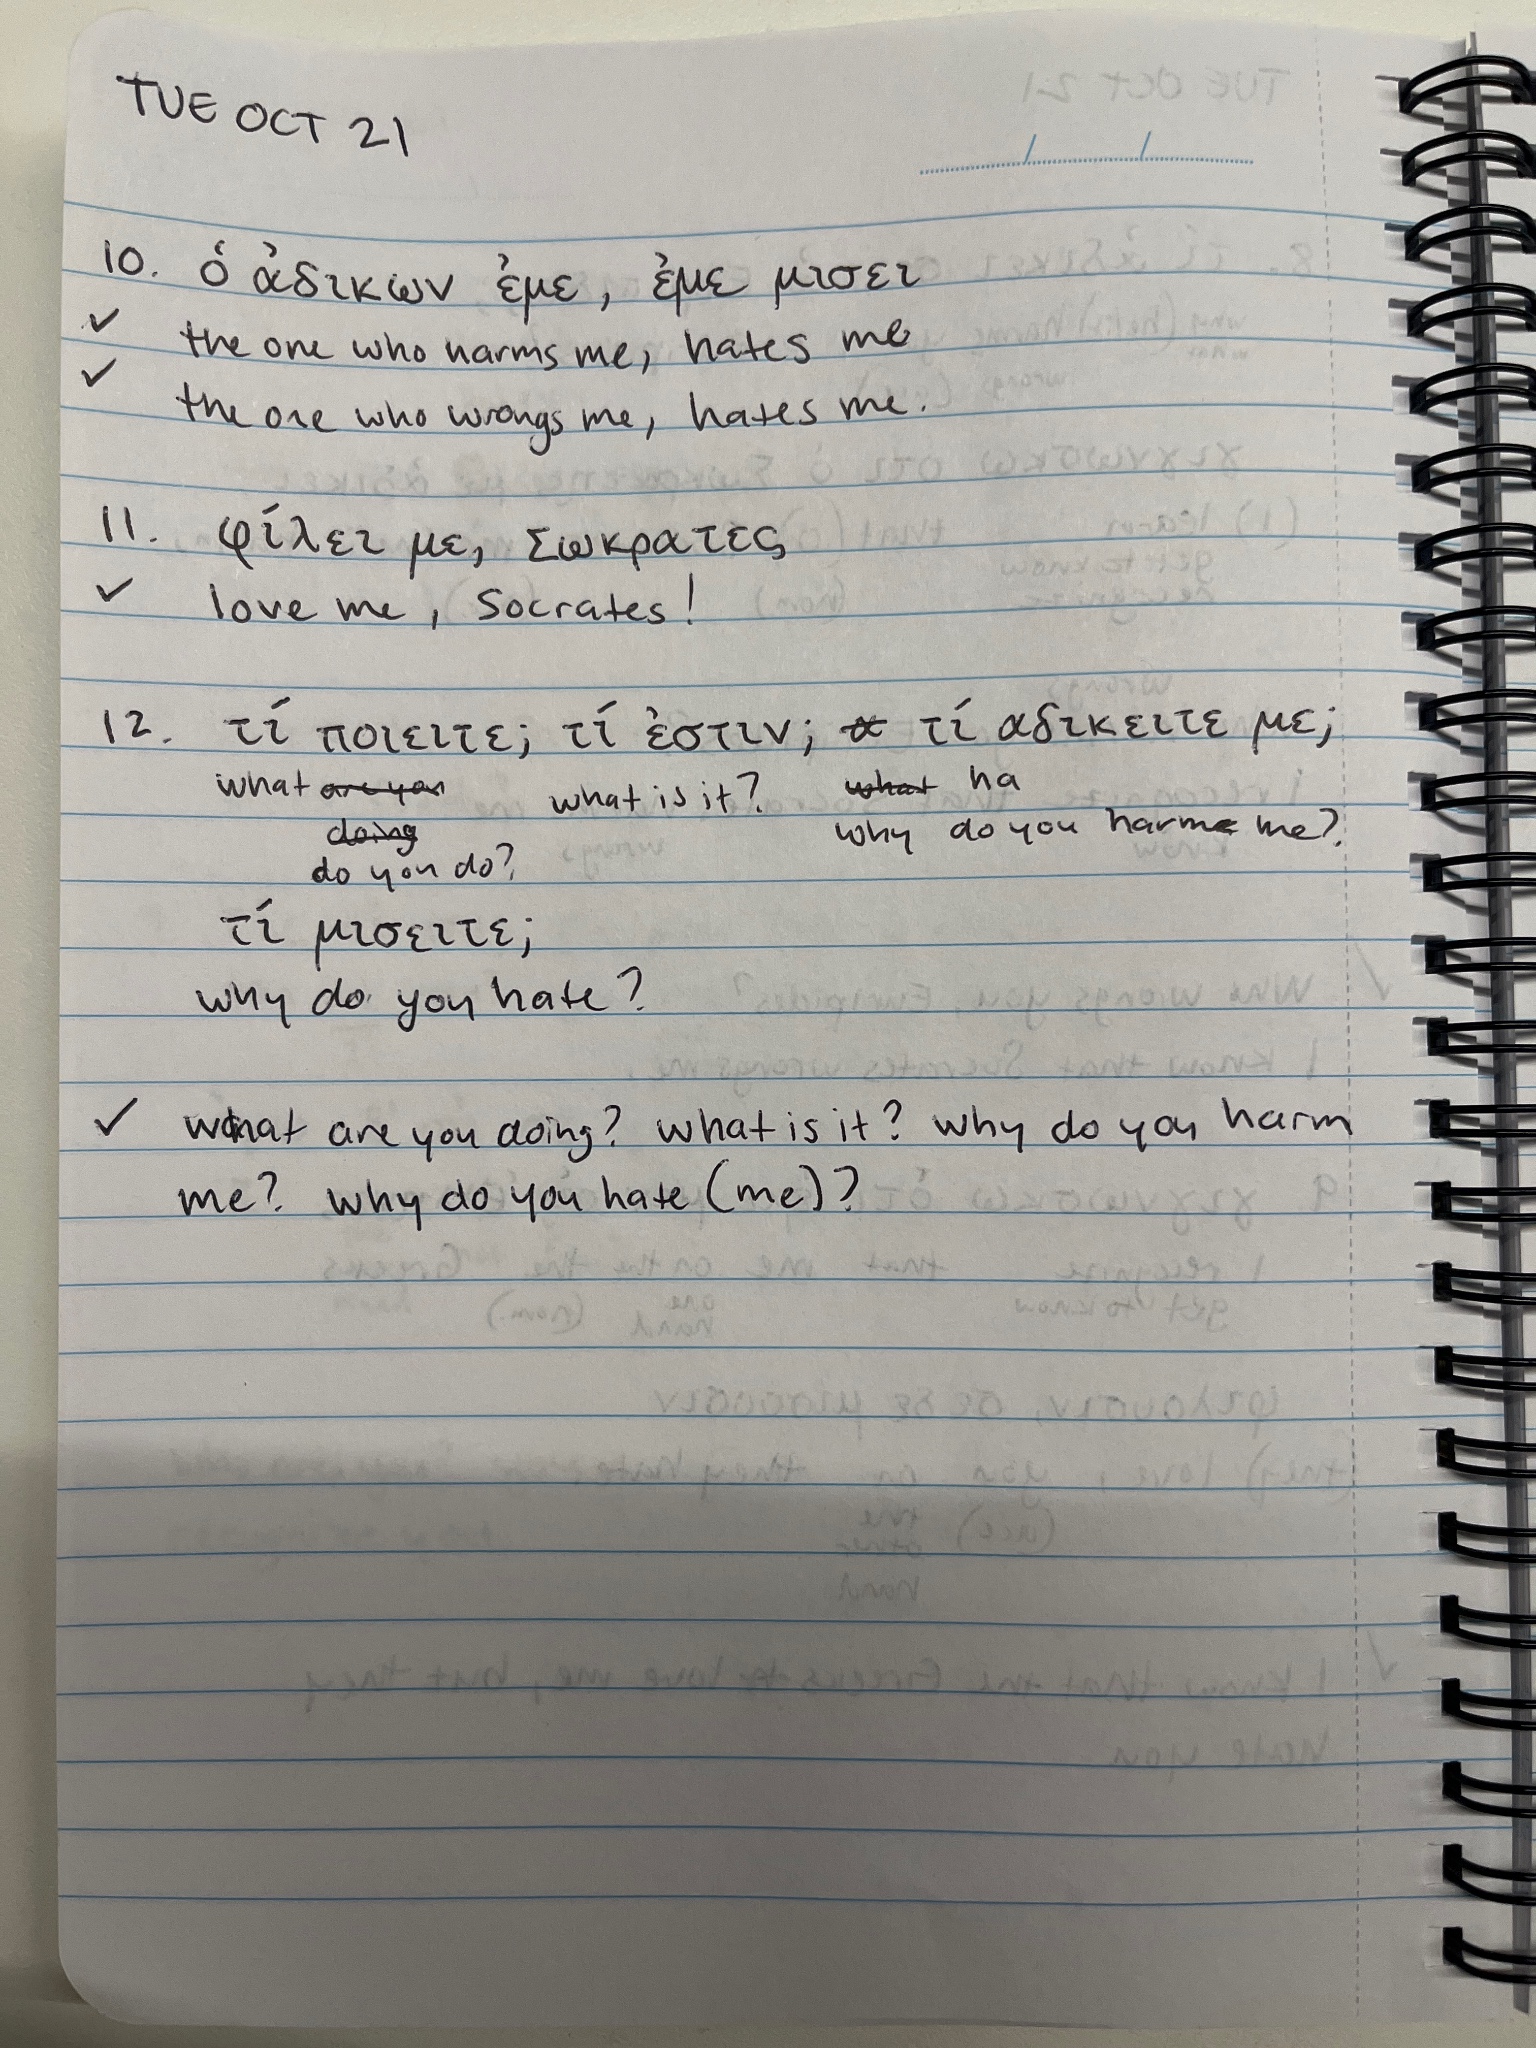 TUE OCT 21
10. ὁ ἀδικων ἐμε, ἐμε μισει
✓ the one who harms me, hates me
✓ the one who wrongs me, hates me.
11. φίλει με, Σωκρατες
✓ love me, Socrates!
12. τί ποιειτε; τί ἐστιν; τί αδικειτε με;
what are you what is it? what ha
doing why do you harm me?
do you do?
τί μισειτε;
why do you hate?
✓ what are you doing? what is it? why do you harm
me? why do you hate (me)?